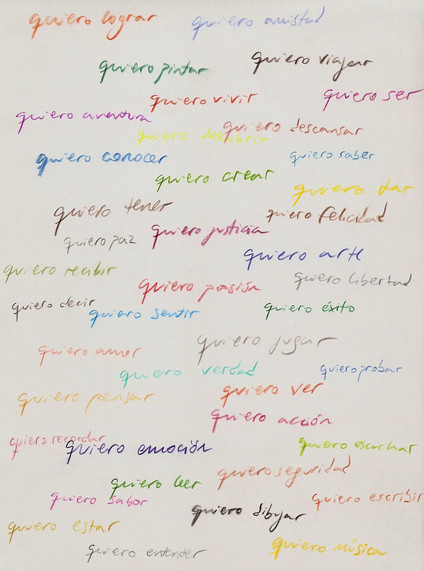 quiero lograr
quiero amistad
quiero pintar
quiero viajar
quiero vivir
quiero ser
quiero aventura
quiero descubrir
quiero descansar
quiero conocer
quiero saber
quiero crear
quiero dar
quiero tener
quiero felicidad
quiero paz
quiero justicia
quiero arte
quiero recibir
quiero pasión
quiero libertad
quiero decir
quiero sentir
quiero éxito
quiero amor
quiero jugar
quiero verdad
quiero probar
quiero pensar
quiero ver
quiero acción
quiero recordar
quiero emoción
quiero escuchar
quiero leer
quiero seguridad
quiero sabor
quiero dibujar
quiero escribir
quiero estar
quiero entender
quiero música